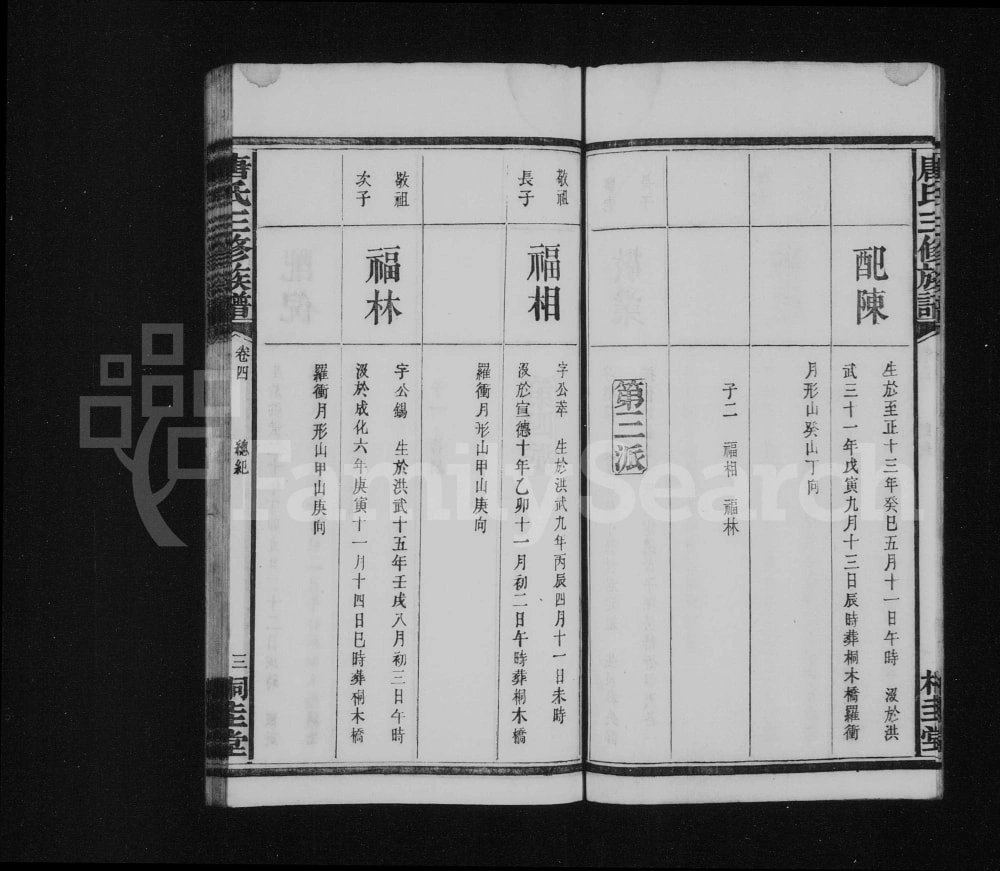 配陳
生於至正十三年癸巳五月十一日午時　沒於洪
武三十一年戊寅九月十三日辰時葬桐木橋羅衝
月形山癸山丁向
子二　福相　福林
第三派
敬祖
長子
福相
字公萃　生於洪武九年丙辰四月十一日未時
沒於宣德十年乙卯十一月初二日午時葬桐木橋
羅衝月形山甲山庚向
敬祖
次子
福林
字公錫　生於洪武十五年壬戌八月初三日午時
沒於成化六年庚寅十一月十四日巳時葬桐木橋
羅衝月形山甲山庚向
唐氏三修族譜
卷四
總紀
三
桐圭堂
FamilySearch